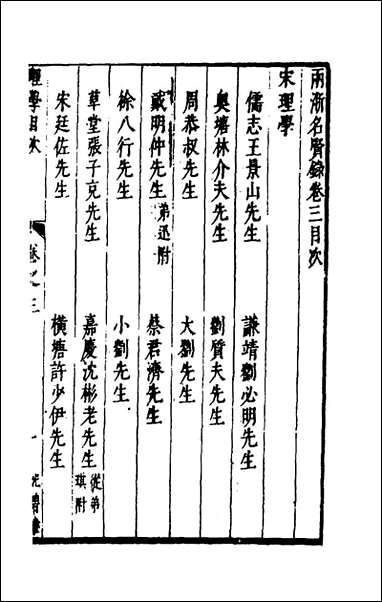 兩浙名賢錄卷三目次
宋理學
儒志王景山先生　謙靖劉必明先生
奧塘林介夫先生　劉質夫先生
周恭叔先生　大劉先生
戴明仲先生弟迅附　蔡君濟先生
徐八行先生　小劉先生
草堂張子克先生　嘉慶沈彬老先生從弟琪附
宋廷佐先生　橫塘許少伊先生
理學目次　卷之三　一